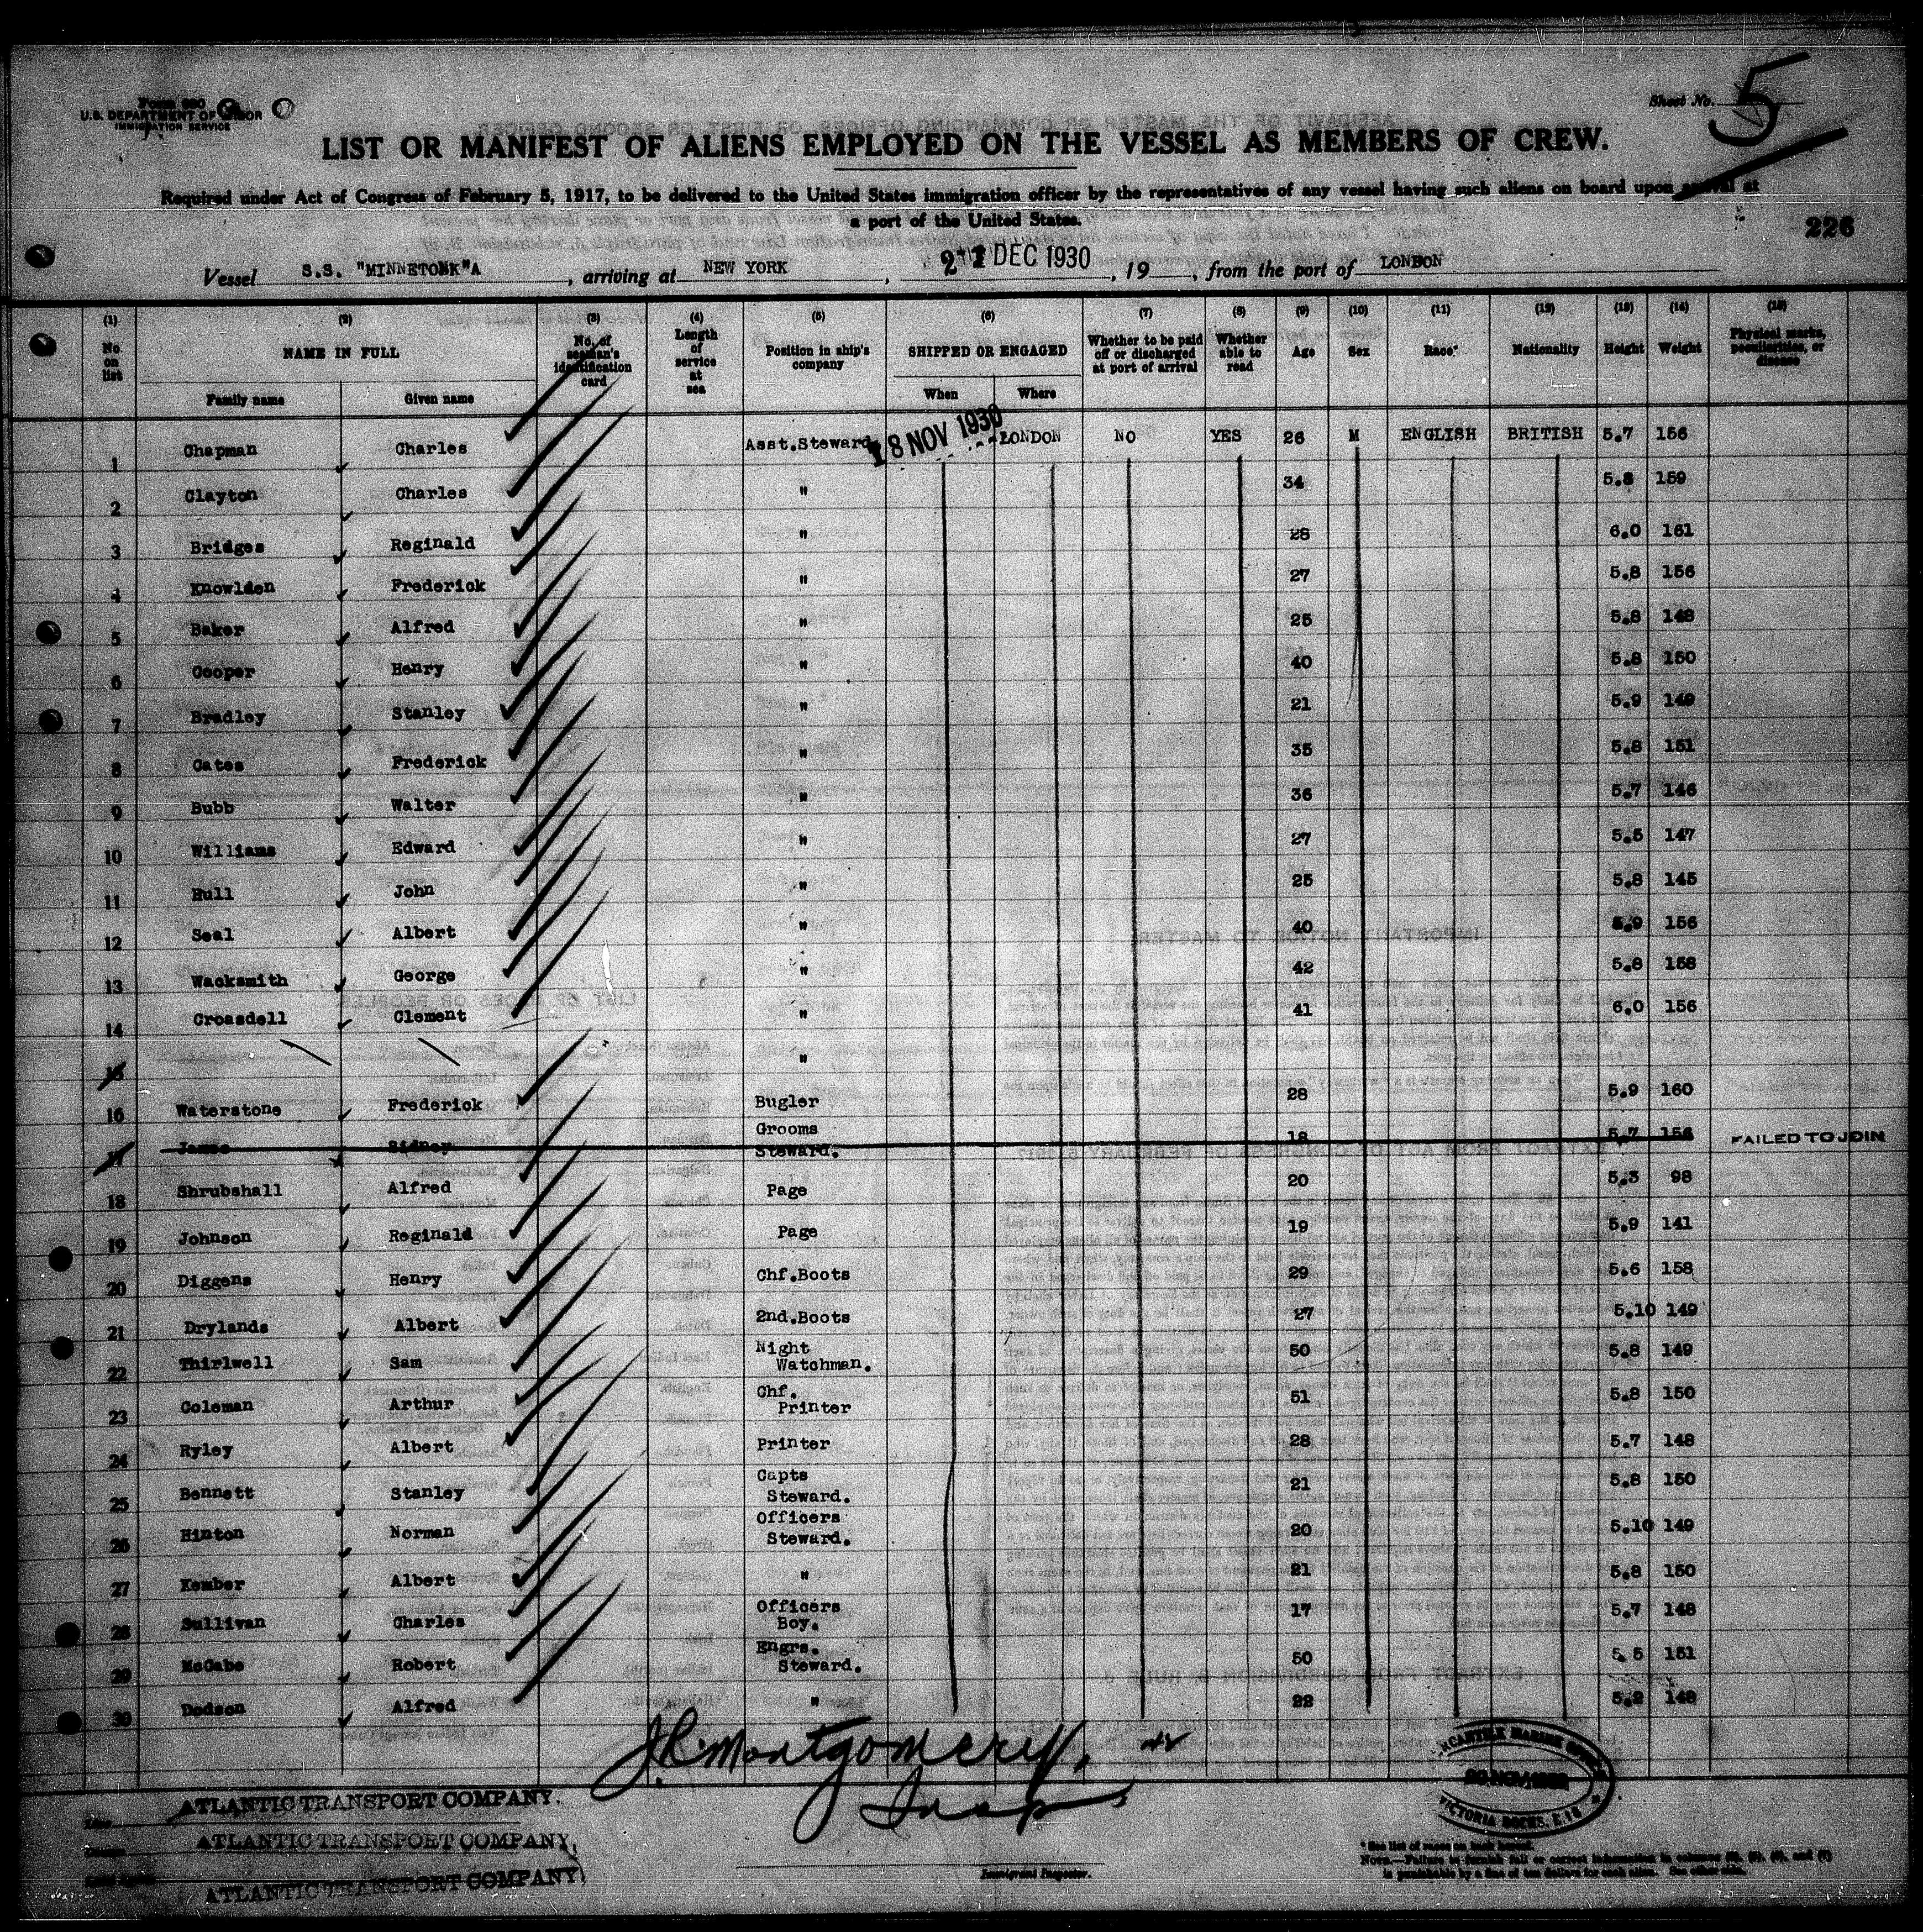 Form 680
U.S. DEPARTMENT OF LABOR
IMMIGRATION SERVICE
Sheet No. 5
LIST OR MANIFEST OF ALIENS EMPLOYED ON THE VESSEL AS MEMBERS OF CREW.
Required under Act of Congress of February 5, 1917, to be delivered to the United States immigration officer by the representatives of any vessel having such aliens on board upon arrival at
a port of the United States.
226
Vessel S.S. "MINNETONK"A, arriving at NEW YORK, DEC 1930, 19, from the port of LONDON
(1) (2) (3) (4) (5) (6) (7) (8) (9) (10) (11) (12) (13) (14) (15)
No. on list NAME IN FULL No. of seaman's identification card Length of service at sea Position in ship's company SHIPPED OR ENGAGED Whether to be paid off or discharged at port of arrival Whether able to read Age Sex Race* Nationality Height Weight Physical marks, peculiarities, or disease
Family name Given name When Where
1 Chapman Charles Asst.Steward 18 NOV 1930 LONDON NO YES 26 M ENGLISH BRITISH 5.7 156
2 Clayton Charles " 34 5.8 159
3 Bridges Reginald " 28 6.0 161
4 Knowlden Frederick " 27 5.8 156
5 Baker Alfred " 25 5.8 148
6 Cooper Henry " 40 5.8 150
7 Bradley Stanley " 21 5.9 149
8 Cates Frederick " 35 5.8 151
9 Bubb Walter " 36 5.7 146
10 Williams Edward " 27 5.5 147
11 Hull John " 25 5.8 145
12 Seal Albert " 40 5.9 156
13 Wacksmith George " 42 5.8 158
14 Croasdell Clement " 41 6.0 156
15 "
16 Waterstone Frederick Bugler 28 5.9 160
17 James Sidney Grooms Steward. 18 5.7 156 FAILED TO JOIN
18 Shrubshall Alfred Page 20 5.3 98
19 Johnson Reginald Page 19 5.9 141
20 Diggens Henry Chf.Boots 29 5.6 158
21 Drylands Albert 2nd.Boots 27 5.10 149
22 Thirlwell Sam Night Watchman. 50 5.8 149
23 Coleman Arthur Chf. Printer 51 5.8 150
24 Ryley Albert Printer 28 5.7 148
25 Bennett Stanley Capts Steward. 21 5.8 150
26 Hinton Norman Officers Steward. 20 5.10 149
27 Kember Albert " 21 5.8 150
28 Sullivan Charles Officers Boy. 17 5.7 148
29 McCabe Robert Engrs. Steward. 50 5.5 151
30 Dodson Alfred " 22 5.2 148
Montgomery
Insp
MERCANTILE MARINE OFFICE
VICTORIA DOCKS. E.16
ATLANTIC TRANSPORT COMPANY.
ATLANTIC TRANSPORT COMPANY,
ATLANTIC TRANSPORT COMPANY
Immigrant Inspector.
* See list of races on back hereof.
Note.—Failure to furnish full or correct information in columns
is punishable by a fine of ten dollars for each alien. See other side.